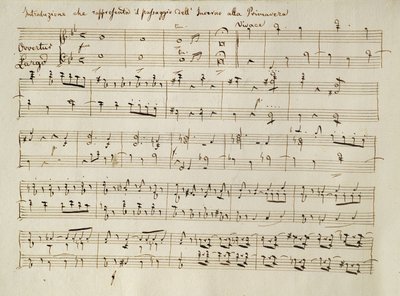 Introduzione che rappresenta il passaggio dell' Inverno alla Primavera
Vivace
Overtur
Largo